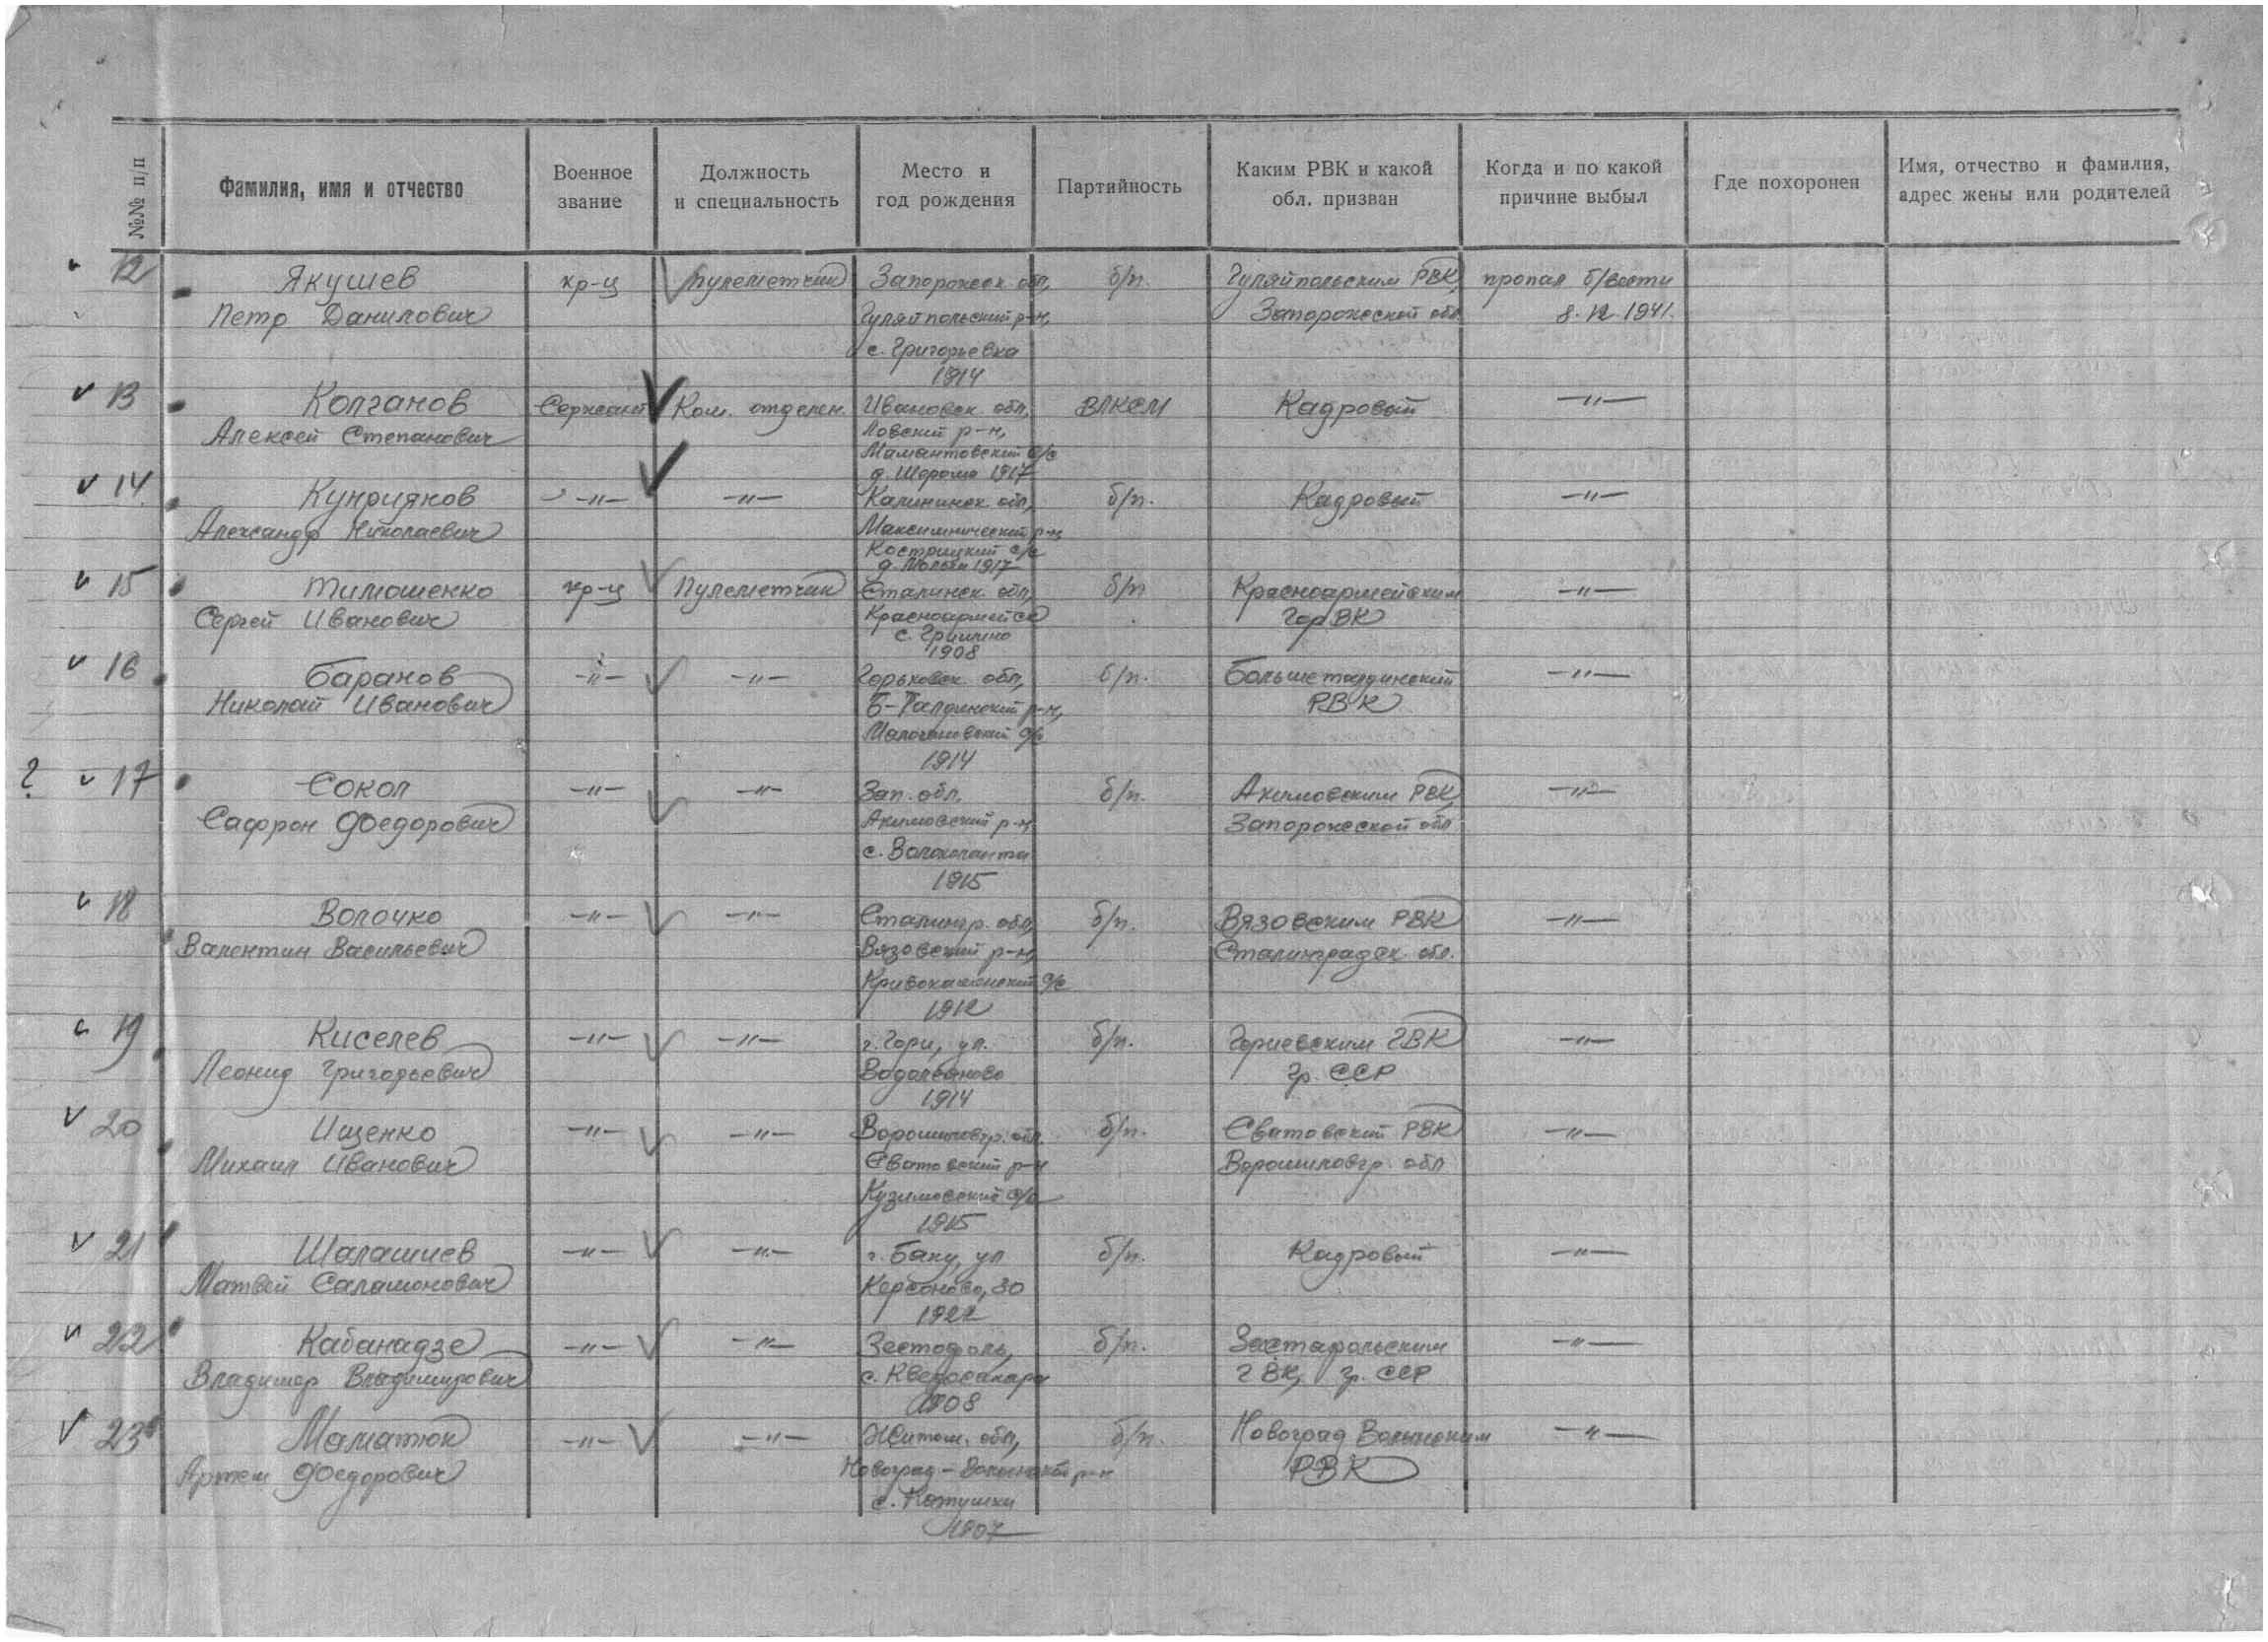 №№ п/п
Фамилия, имя и отчество
Военное звание
Должность и специальность
Место и год рождения
Партийность
Каким РВК и какой обл. призван
Когда и по какой причине выбыл
Где похоронен
Имя, отчество и фамилия, адрес жены или родителей
12 Якушев кр-ц Пулеметчик Запорожск. обл, б/п. Гуляйпольским РВК, пропал б/вести
Петр Данилович Гуляйпольский р-н, Запорожской обл. 8.12.1941.
с. Григорьевка
1914
13 Колганов Сержант Ком. отделен. Ивановск. обл, ВЛКСМ Кадровый —"—
Алексей Степанович р-н,
Мамантовский с/с
д. 1917
14 Куприянов —"— —"— Калининск. обл, б/п. Кадровый —"—
Александр Николаевич р-н
с/с
д. 1917
15 Тимошенко кр-ц Пулеметчик Сталинск. обл, б/п Красноармейским —"—
Сергей Иванович Красноармейск ГорВК
с. Гришино
1908
16 Баранов —"— —"— Горьковск. обл, б/п. Большеталдинский —"—
Николай Иванович Б-Талдинский р-н, РВК
с/с
1914
? 17 Сокол —"— —"— Зап. обл. б/п. Акимовским РВК, —"—
Сафрон Федорович Акимовский р-н Запорожской обл.
с.
1915
18 Волочко —"— —"— Сталингр. обл, б/п. Вязовским РВК —"—
Валентин Васильевич Вязовский р-н, Сталинградск. обл.
с/с
1912
19 Киселев —"— —"— г. Гори, ул. б/п. Гориевским ГВК —"—
Леонид Григорьевич Гр. ССР
1914
20 Ищенко —"— —"— Ворошиловгр. обл. б/п. Сватовский РВК —"—
Михаил Иванович Сватовский р-н Ворошиловгр. обл
Кузимовский с/с
1915
21 Шалашиев —"— —"— г. Баку, ул б/п. Кадровый —"—
Матвей Саламонович 30
1922
22 Кабанадзе —"— —"— б/п. —"—
Владимер Владимирович с. Кведосакара ГВК, гр. ССР
1908
23 Маматюк —"— —"— Житом. обл, б/п. Новоград Волынским —"—
Артем Федорович Новоград-Волынский р-н РВК
с.
1907